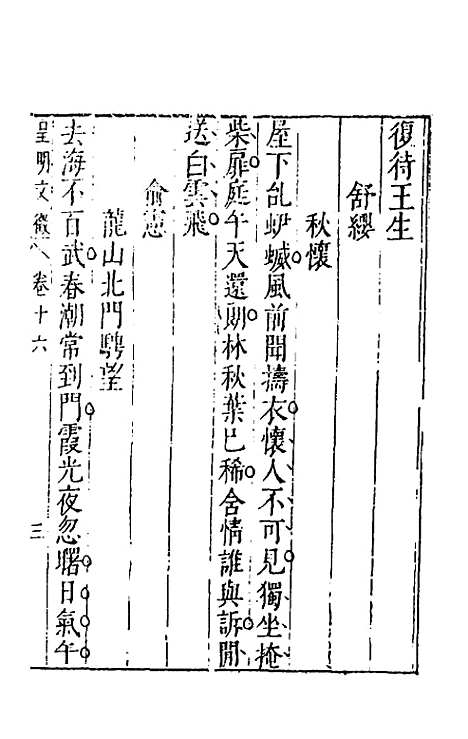 復待王生
舒纓
秋懷
屋下乱蛜蝛風前聞擣衣懷人不可見獨坐掩
柴扉庭午天還則林秋葉已稀含情誰與訴閒
送白雲飛
俞憲
龍山北門騁望
去海不百武春潮常到門霞光夜忽曙日氣午
皇明文徵 卷十六 三